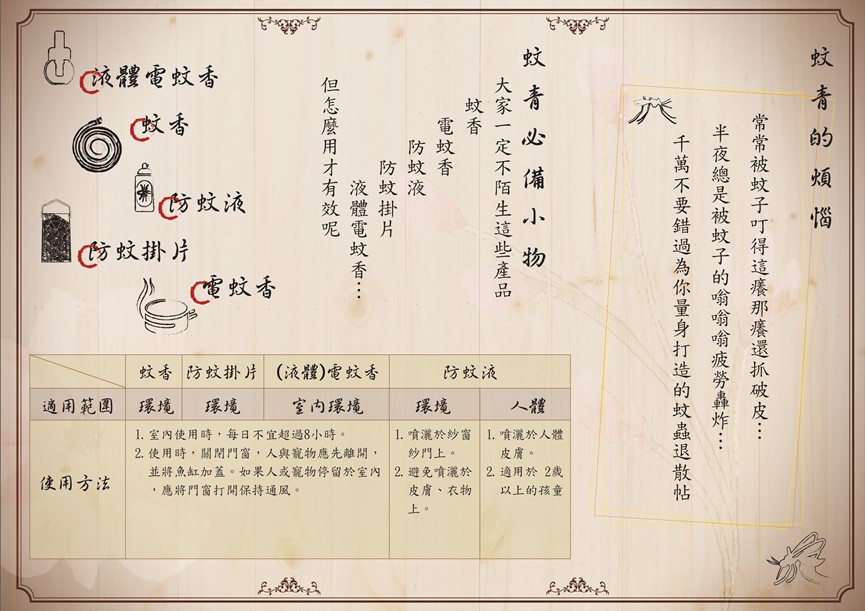 蚊青的煩惱
常常被蚊子叮得這癢那癢還抓破皮…
半夜總是被蚊子的嗡嗡嗡疲勞轟炸…
千萬不要錯過為你量身打造的蚊蟲退散帖
蚊青必備小物
大家一定不陌生這些產品
蚊香
電蚊香
防蚊液
防蚊掛片
液體電蚊香…
但怎麼用才有效呢
液體電蚊香
蚊香
防蚊液
防蚊掛片
電蚊香
蚊香 防蚊掛片 (液體)電蚊香 防蚊液
適用範圍 環境 環境 室內環境 環境 人體
使用方法
1. 室內使用時，每日不宜超過8小時。
2. 使用時，關閉門窗，人與寵物應先離開，
並將魚缸加蓋。如果人或寵物停留於室內
，應將門窗打開保持通風。
1. 噴灑於紗窗
紗門上。
2. 避免噴灑於
皮膚、衣物
上。
1. 噴灑於人體
皮膚。
2. 適用於 2歲
以上的孩童